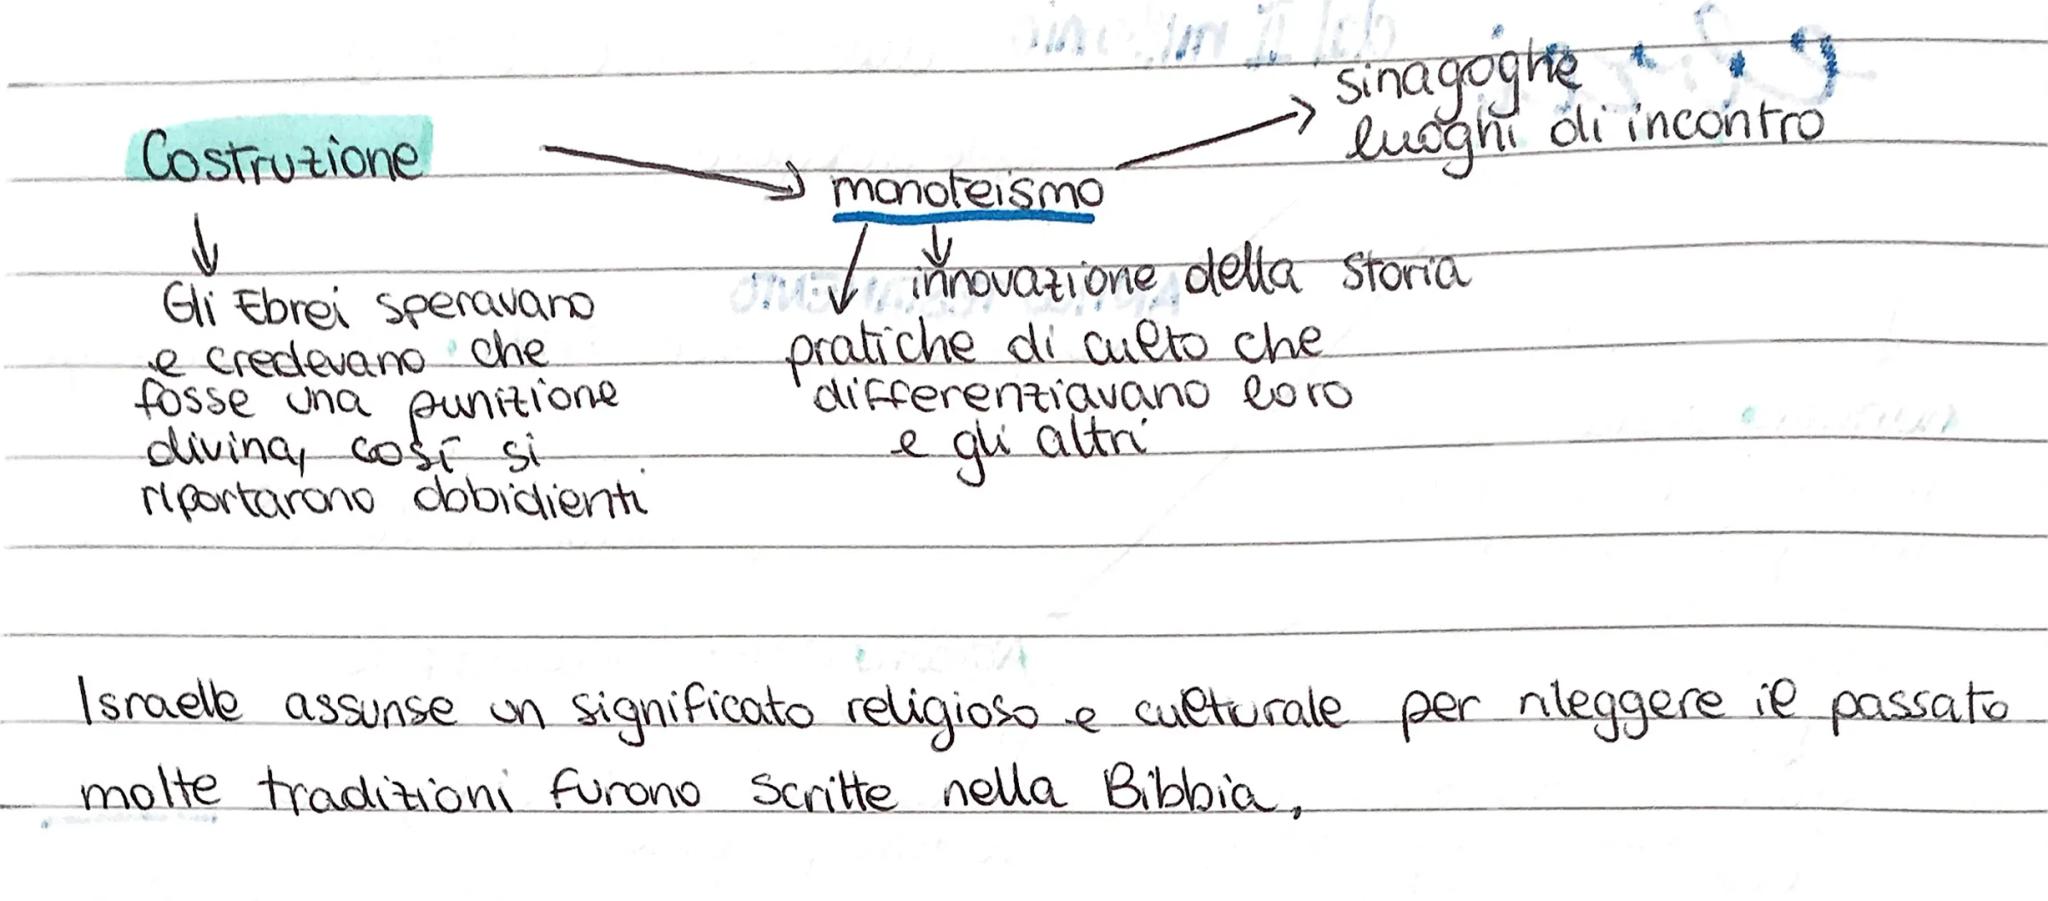 sinagoghe
luoghi di incontro
Costruzione
monoteismo
innovazione della storia
Gli Ebrei speravano
e credevano che
fosse una punizione
divina, così si
riportarono obbidienti
pratiche di culto che
differenziavano loro
e gli altri
Israele assunse un significato religioso e culturale per rileggere il passato
molte tradizioni furono scritte nella Bibbia,